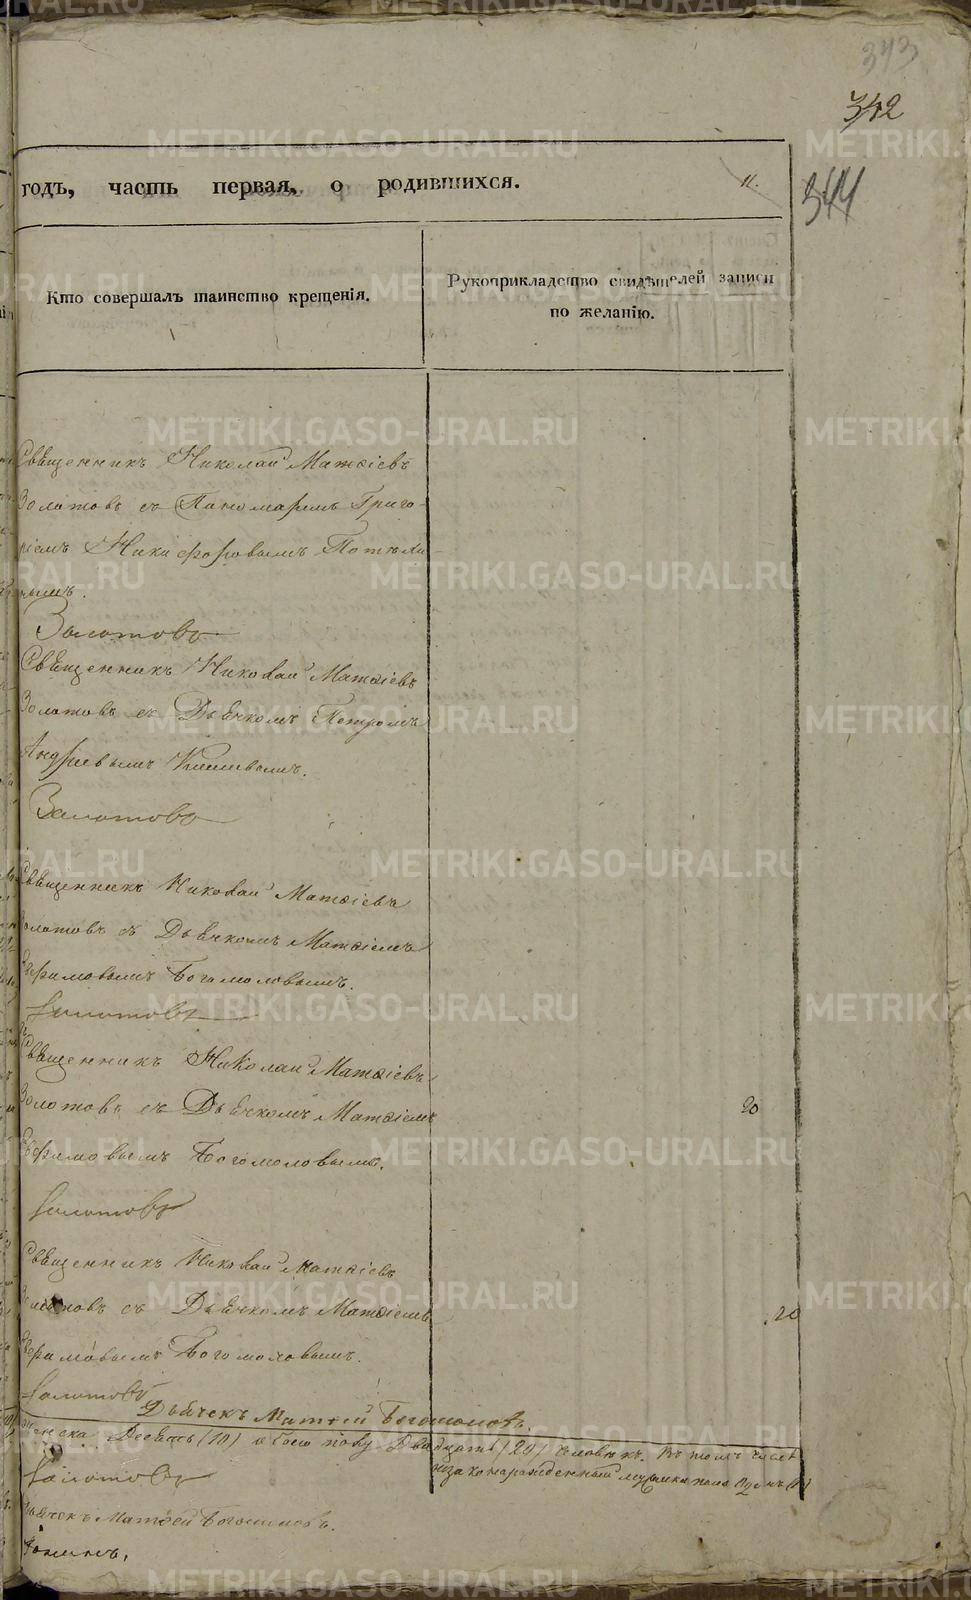 343
342
344
годъ, часть первая, о родившихся.
11.
Кто совершалъ таинство крещенія.
Рукоприкладство свидѣтелей записи
по желанію.
Священникъ Николай Матѳіевъ
Золотовъ съ Пономаремъ Григо-
ріемъ Никифоровымъ Потѣхи-
нымъ.
Золотовъ
Священникъ Николай Матѳіевъ
Золотовъ съ Дьячкомъ Петромъ
Андріевымъ
Золотовъ
Священникъ Николай Матѳіевъ
Золотовъ съ Дьячкомъ Матѳіемъ
Ефимовымъ Богомоловымъ.
Золотовъ
Священникъ Николай Матѳіевъ
Золотовъ съ Дьячкомъ Матѳіемъ
20
Ефимовымъ Богомоловымъ.
Золотовъ
Священникъ Николай Матѳіевъ
Золотовъ съ Дьячкомъ Матѳіемъ
20
Ефимовымъ Богомоловымъ.
Золотовъ
Дьячекъ Матѳей Богомоловъ.
женска Десять (10) обоего полу Двадцать (20) человѣкъ. Въ томъ числѣ
незаконорожденный мужеска пола одинъ (1)
Золотовъ
Дьячекъ Матѳей Богомоловъ.
METRIKI.GASO-URAL.RU